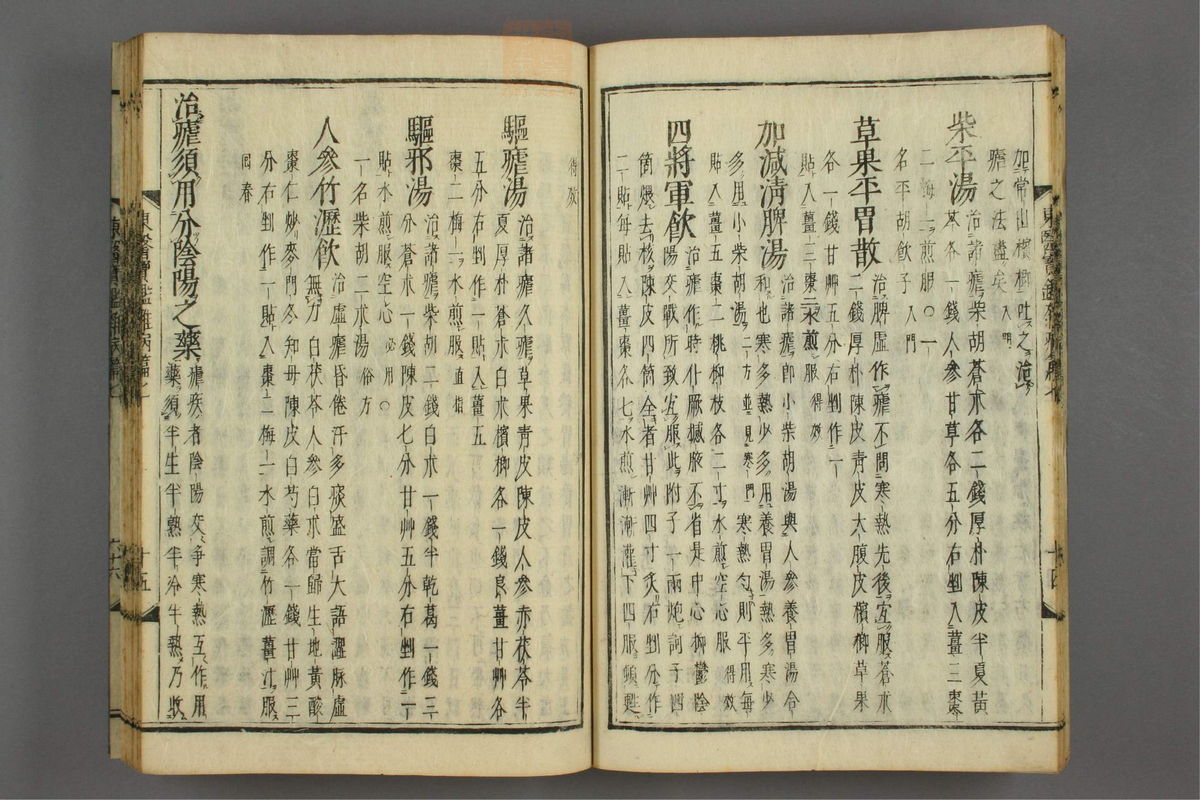 加常山檳榔吐之治
瘧之法盡矣入門
柴平湯
治諸瘧柴胡蒼朮各二錢厚朴陳皮半夏黃
芩各一錢人參甘草各五分右剉入薑三棗
二梅一煎服〇一
名平胡飮子入門
草果平胃散
治脾虛作瘧不問寒熱先後宜服蒼朮
二錢厚朴陳皮靑皮大腹皮檳榔草果
各一錢甘艸五分右剉作一
貼入薑三棗二水煎服得效
加減淸脾湯
治諸瘧卽小柴胡湯與人參養胃湯合
和也寒多熱少多用養胃湯熱多寒少
多用小柴胡湯二方並見寒門寒熱勻則平用每
貼入薑五棗二桃柳枝各二寸水煎空心服得效
四將軍飮
治瘧作時仆厥撼腋不省是中心抑鬱陰
陽交戰所致宜服此附子一兩炮訶子四
箇煨去核陳皮四箇全者甘艸四寸炙右剉分作
二貼每貼入薑棗各七水煎漸漸灌下四服頓甦
得效
驅瘧湯
治諸瘧久瘧草果靑皮陳皮人參赤茯苓半
夏厚朴蒼朮白朮檳榔各一錢良薑甘艸各
五分右剉作一貼入薑五
棗二梅一水煎服直指
驅邪湯
治諸瘧柴胡二錢白朮一錢半乾葛一錢三
分蒼朮一錢陳皮七分甘艸五分右剉作一
貼水煎服空心必用〇
一名柴胡二朮湯俗方
人參竹瀝飮
治虛瘧昏倦汗多痰盛舌大語澀脉虛
無力白茯苓人參白朮當歸生地黃酸
棗仁炒麥門冬知母陳皮白芍藥各一錢甘艸三
分右剉作一貼入棗二梅一水煎調竹瀝薑汁服
回春
治瘧須用分陰陽之藥
瘧疾者陰陽交爭寒熱互作用
藥須半生半熟半冷半熱乃收